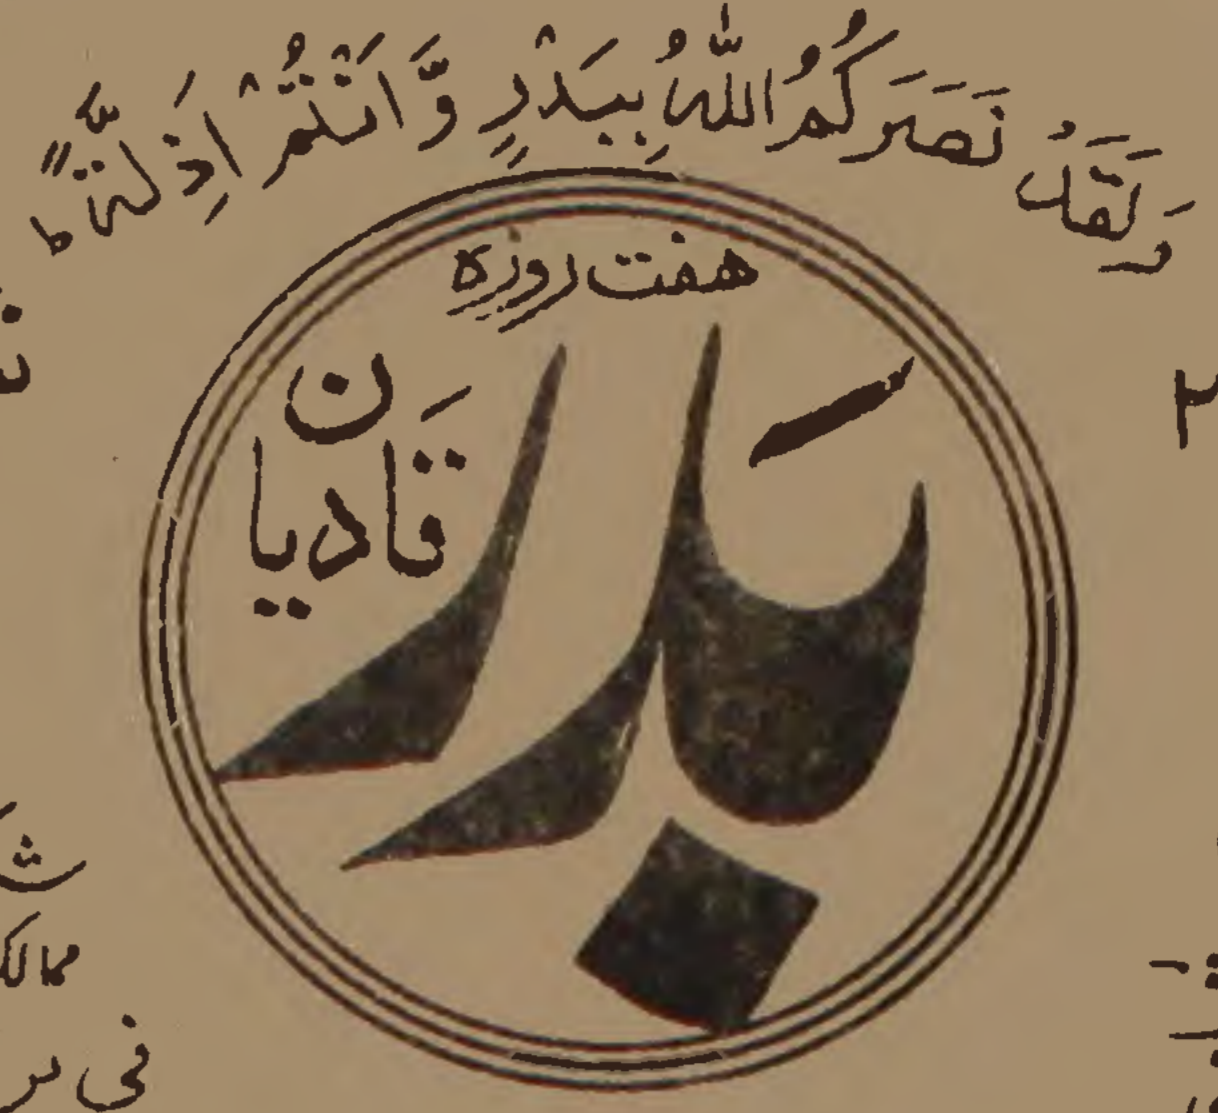 وَلَقَدْ نَصَرَكُمُ اللّٰهُ بِبَدْرٍ وَّاَنْتُمْ اَذِلَّةٌ ط
هفت روزہ
بَدر
قَادیان
ممالک
فی پر